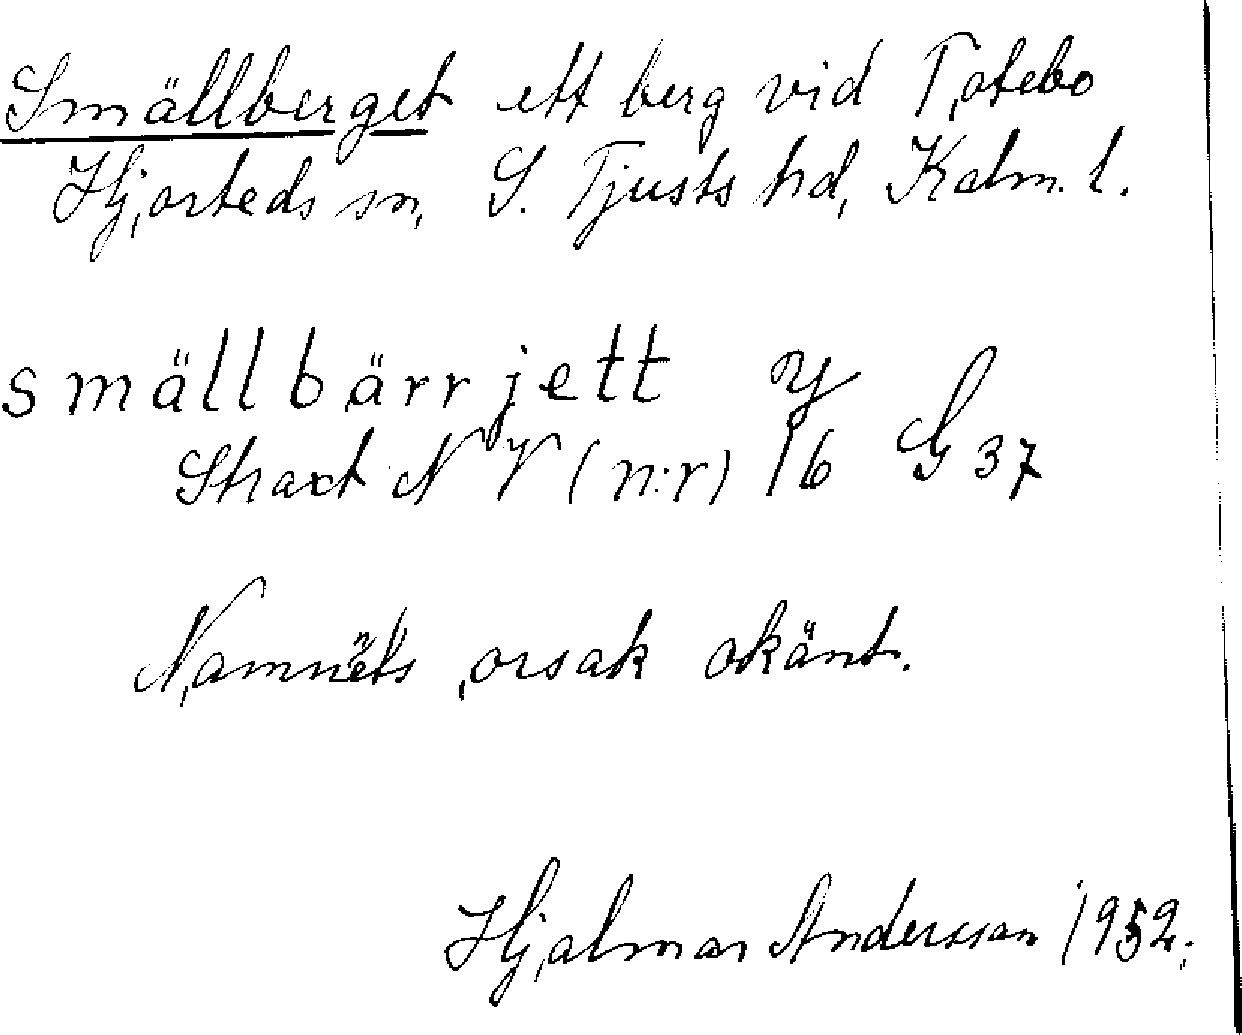 Smällberget ett berg vid Totebo
Hjorteds sn, S. Tjusts hd, Kalm. l.
smällbärrjett y
Straxt N V (n:r) 16 G 37
Namnets orsak okänt.
Hjalmar Andersson 1952.